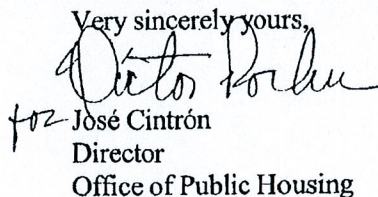 Very sincerely yours,
Victor
for José Cintrón
Director
Office of Public Housing